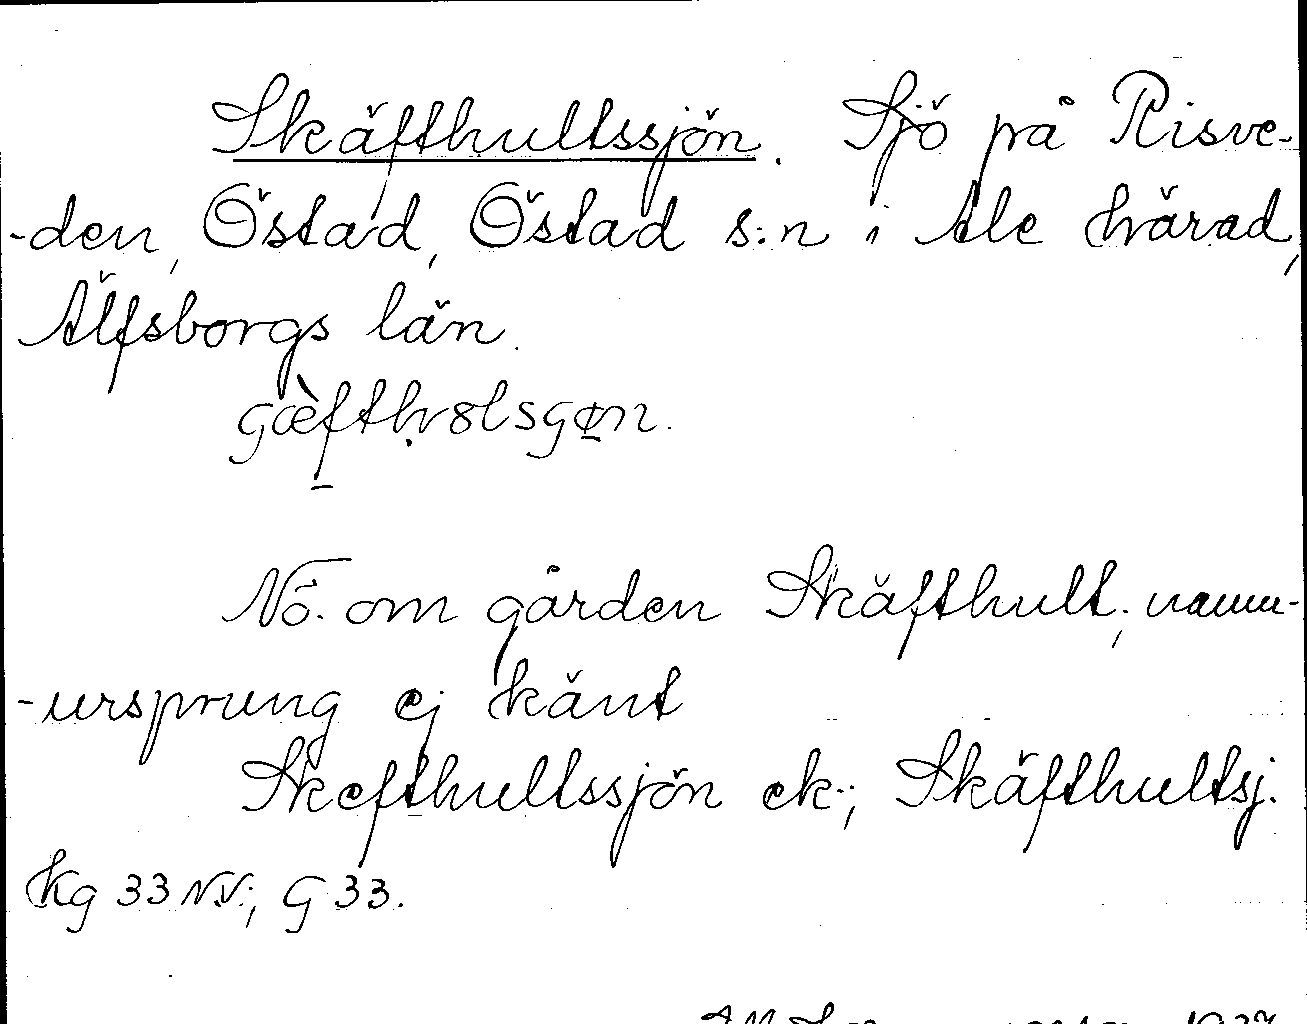 Skäfthultssjön. Sjö på Risve-
-den, Östad, Östad s:n i Ale härad,
Älfsborgs län.
NÖ. om gården Skäfthult; namn-
-ursprung ej känt
Skefthultssjön ek.; Skäfthultsj.
Kg 33 NV.; G 33.